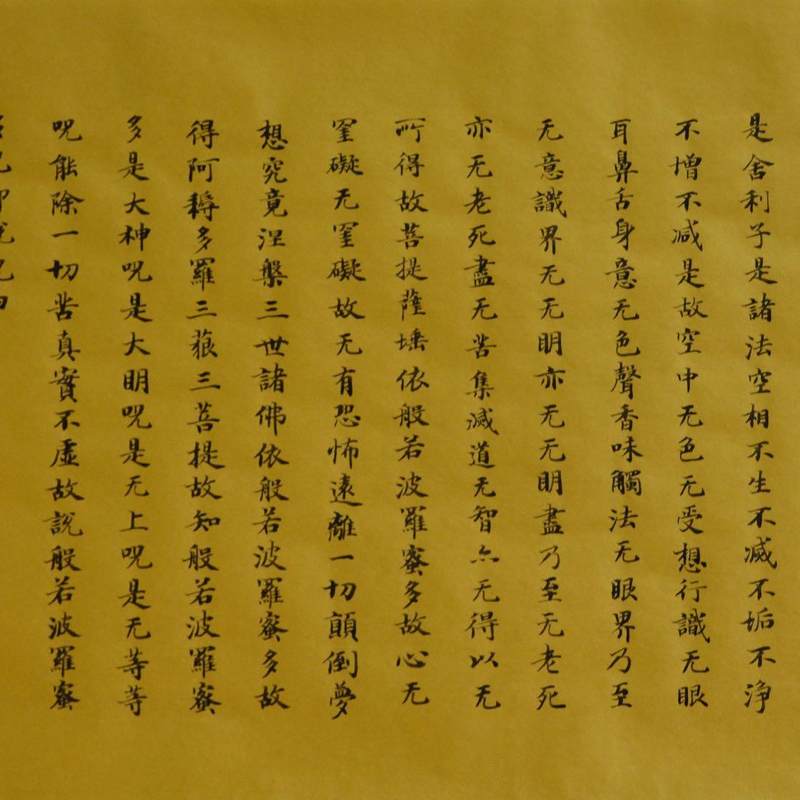 是舍利子是諸法空相不生不滅不垢不淨
不增不減是故空中无色无受想行識无眼
耳鼻舌身意无色聲香味觸法无眼界乃至
无意識界无无明亦无无明盡乃至无老死
亦无老死盡无苦集滅道无智亦无得以无
所得故菩提薩埵依般若波羅蜜多故心无
罣礙无罣礙故无有恐怖遠離一切顛倒夢
想究竟涅槃三世諸佛依般若波羅蜜多故
得阿耨多羅三藐三菩提故知般若波羅蜜
多是大神呪是大明呪是无上呪是无等等
呪能除一切苦真實不虛故說般若波羅蜜